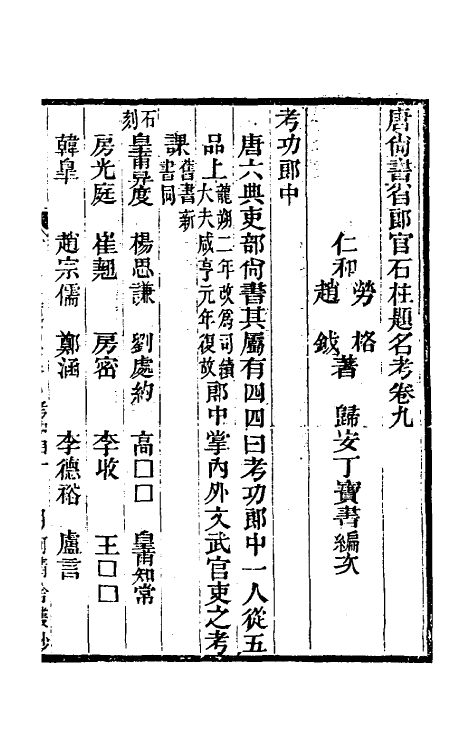 唐尚書省郎官石柱題名考卷九
仁和勞格趙鉞著 歸安丁寶書編次
考功郎中
唐六典吏部尚書其屬有四四曰考功郎中一人從五
品上龍朔二年改爲司績大夫咸亨元年復故郎中掌內外文武官吏之考
課舊書新書同
石刻皇甫异度 楊思謙 劉處約 高□□ 皇甫知常
房光庭 崔翹 房密 李收 王□□
韓臯 趙宗儒 鄭涵 李德裕 盧言